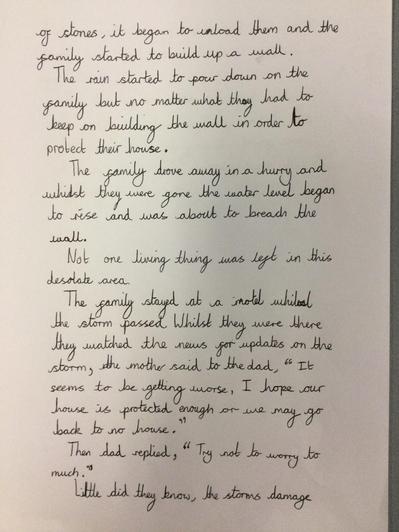 of stones, it began to unload them and the
family started to build up a wall.
The rain started to pour down on the
family but no matter what they had to
keep on building the wall in order to
protect their house.
The family drove away in a hurry and
whilst they were gone the water level began
to rise and was about to breach the
wall.
Not one living thing was left in this
desolate area.
The family stayed at a motel whilst
the storm passed. Whilst they were there
they watched the news for updates on the
storm, the mother said to the dad, "It
seems to be getting worse, I hope our
house is protected enough or we may go
back to no house."
Then dad replied, "Try not to worry to
much."
Little did they know, the storms damage